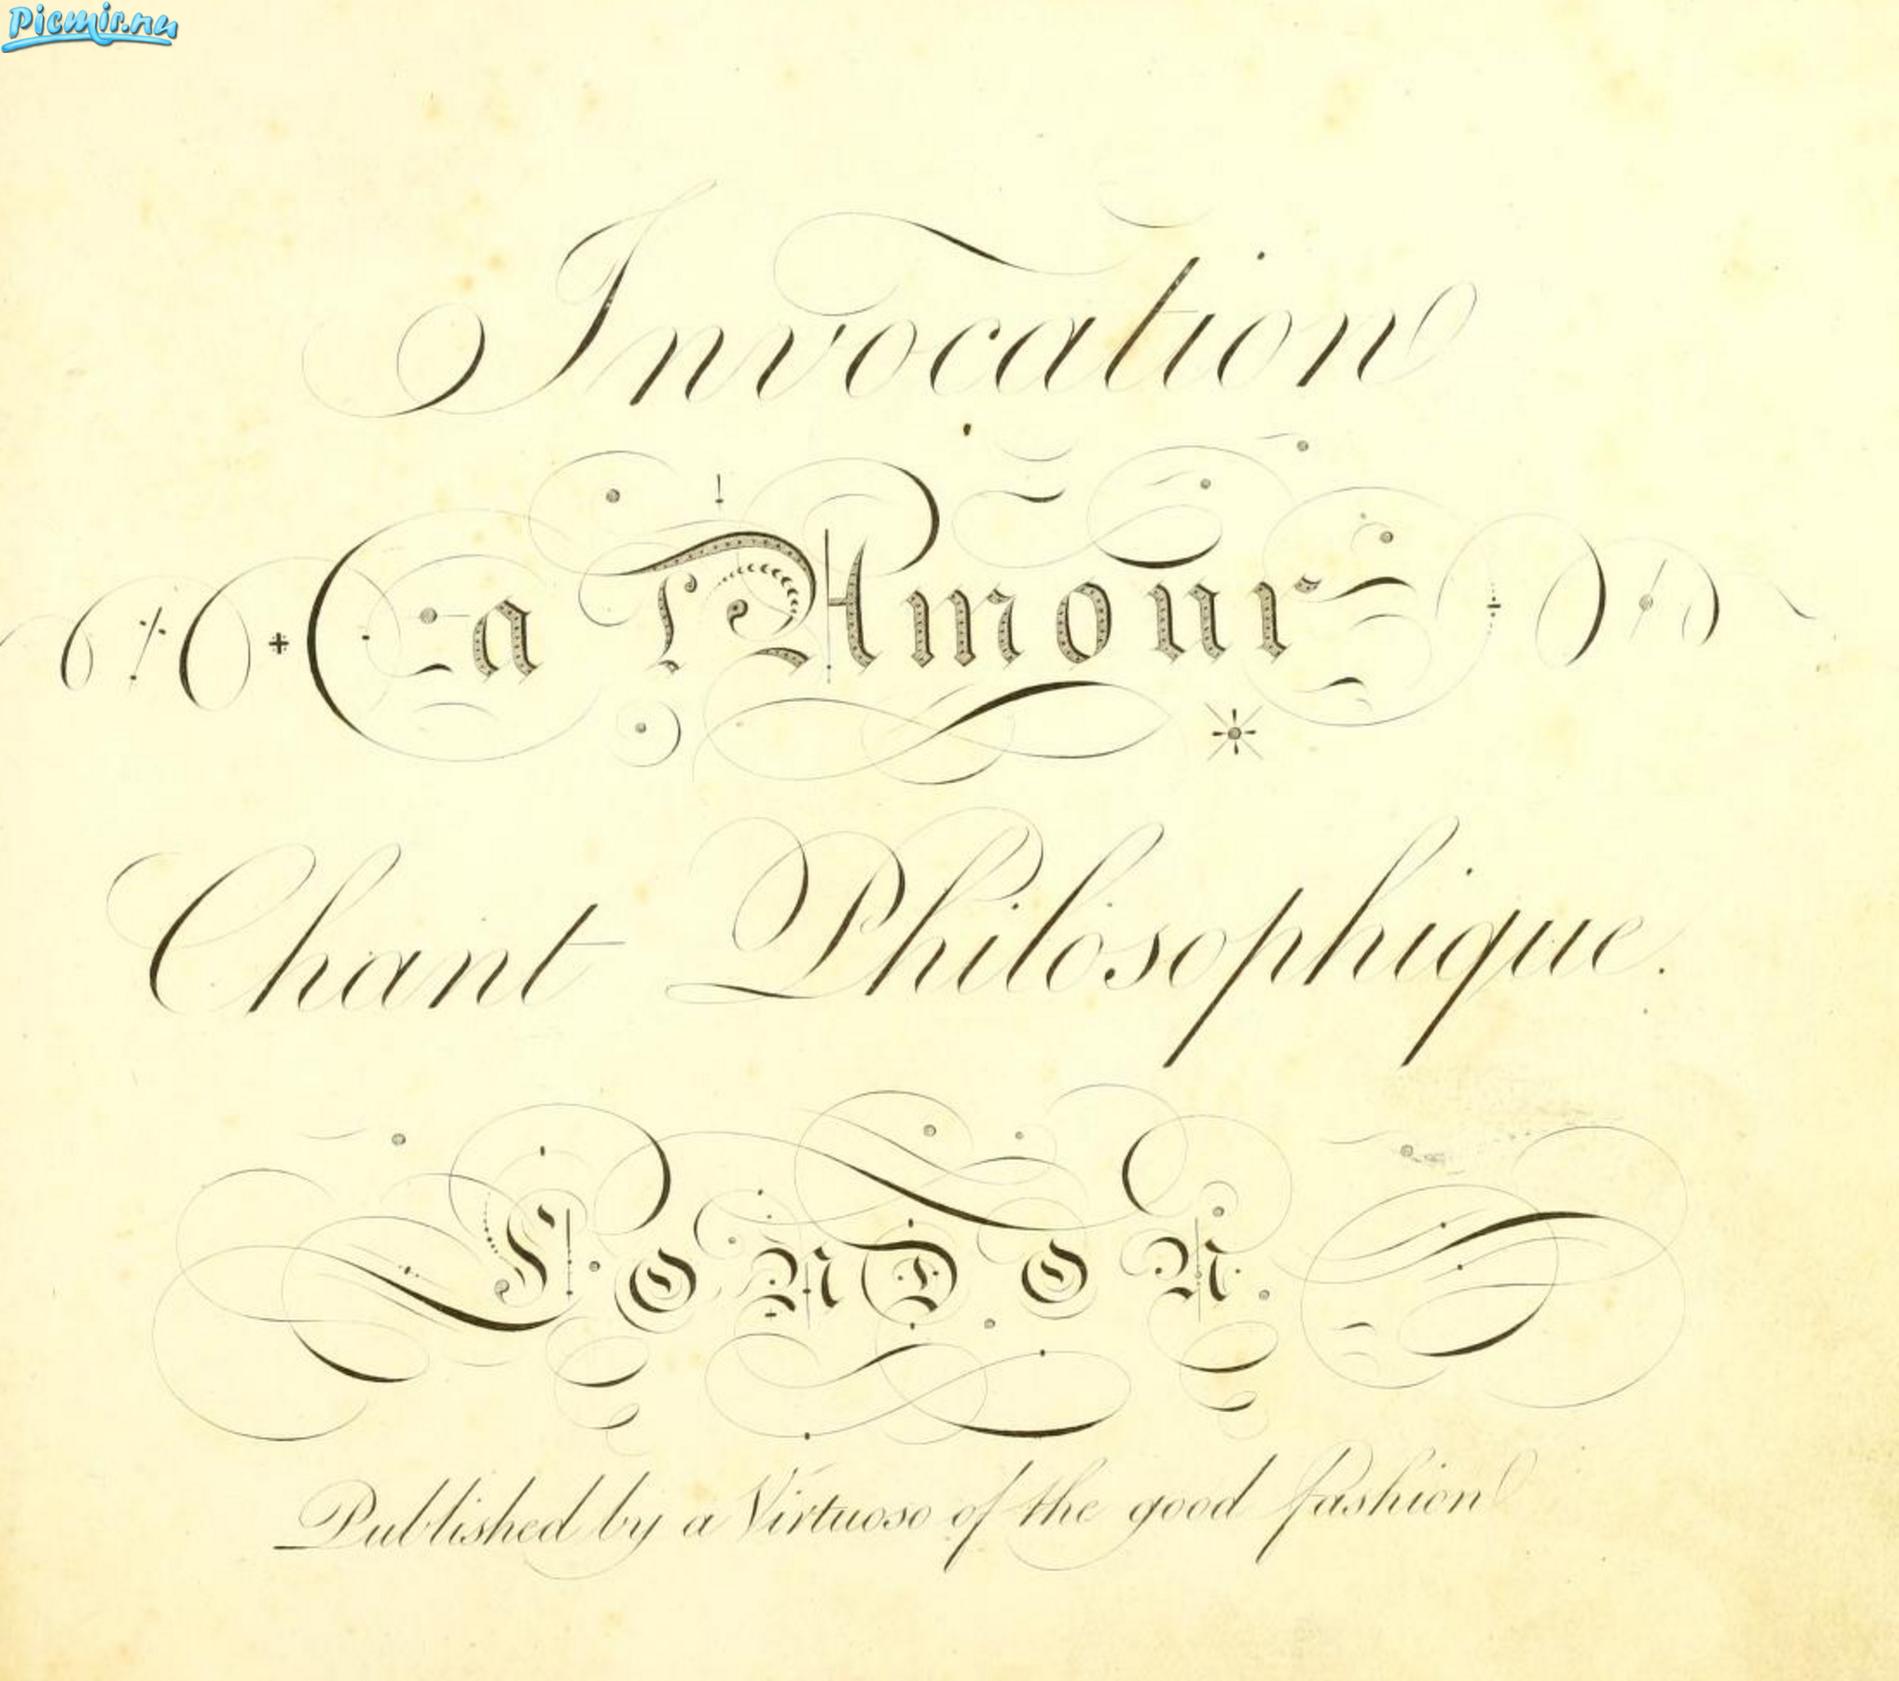 Picmir.nu
Invocation
a l'Amour
Chant Philosophique.
LONDON.
Published by a Virtuoso of the good fashion